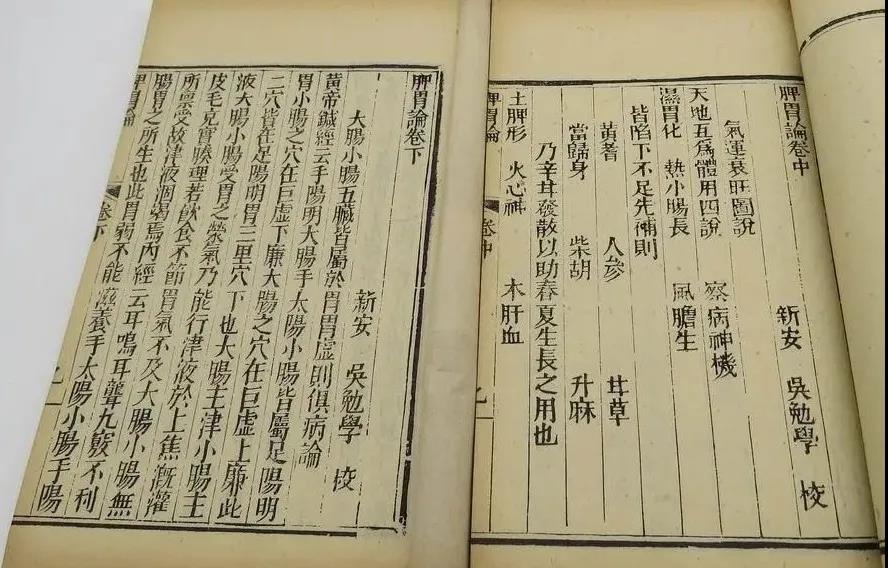 脾胃論卷中
新安 吳勉學 校
氣運衰旺圖說
天地互爲體用四說 察病神機
濕胃化 熱小腸長 風膽生
皆陷下不足先補則
黃耆 人參 甘草
當歸身 柴胡 升麻
乃辛甘發散以助春夏生長之用也
土脾形 火心神 木肝血
脾胃論 卷中
脾胃論卷下
新安 吳勉學 校
大腸小腸五臟皆屬於胃胃虛則俱病論
黃帝鍼經云手陽明大腸手太陽小腸皆屬足陽明
胃小腸之穴在巨虛下廉大腸之穴在巨虛上廉此
二穴皆在足陽明胃三里穴下也大腸主津小腸主
液大腸小腸受胃之榮氣乃能行津液於上焦溉灌
皮毛充實腠理若飲食不節胃氣不及大腸小腸無
所稟受故津液涸竭焉內經云耳鳴耳聾九竅不利
腸胃之所生也此胃弱不能滋養手太陽小腸手陽
脾胃論 卷下